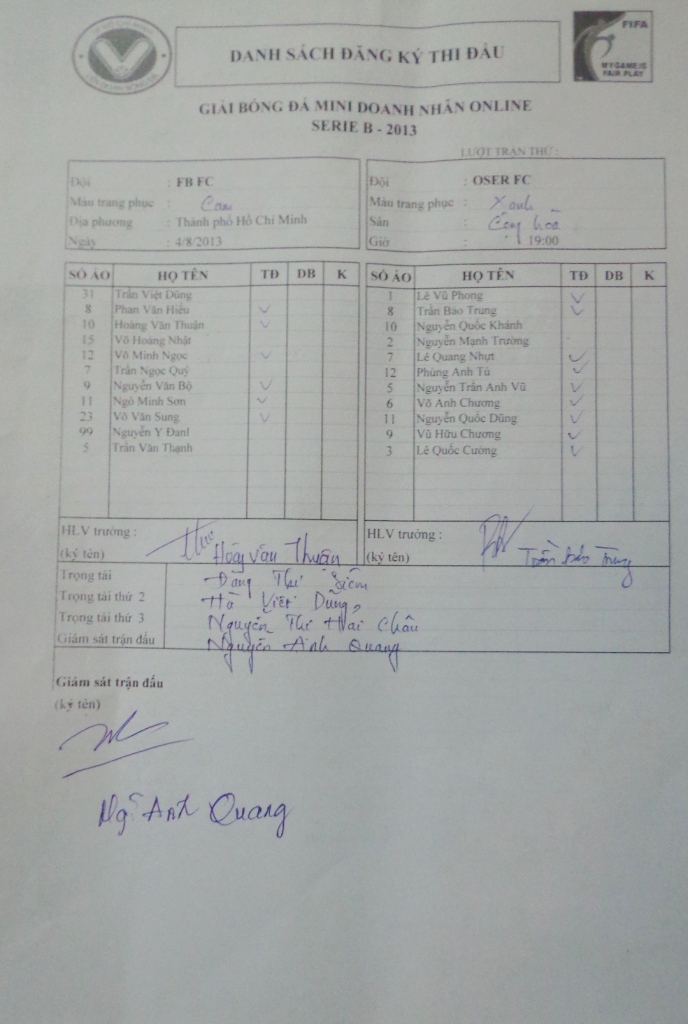 DANH SÁCH ĐĂNG KÝ THI ĐẤU
FIFA
MY GAME IS
FAIR PLAY
GIẢI BÓNG ĐÁ MINI DOANH NHÂN ONLINE
SERIE B - 2013
LƯỢT TRẬN THỨ :
Đội : FB FC
Màu trang phục : Cam
Địa phương : Thành phố Hồ Chí Minh
Ngày : 4/8/2013
Đội : OSER FC
Màu trang phục : Xanh
Sân : Cộng hòa
Giờ : 19:00
SỐ ÁO HỌ TÊN TĐ DB K
31 Trần Việt Dũng
8 Phan Văn Hiếu ✓
10 Hoàng Văn Thuận ✓
15 Võ Hoàng Nhật
12 Võ Minh Ngọc ✓
7 Trần Ngọc Quý
9 Nguyễn Văn Bộ ✓
11 Ngô Minh Sơn ✓
23 Võ Văn Sung ✓
99 Nguyễn Y Đanl
5 Trần Văn Thạnh
SỐ ÁO HỌ TÊN TĐ DB K
1 Lê Vũ Phong ✓
8 Trần Bảo Trung ✓
10 Nguyễn Quốc Khánh
2 Nguyễn Mạnh Trường
7 Lê Quang Nhựt ✓
12 Phùng Anh Tú ✓
5 Nguyễn Trần Anh Vũ ✓
6 Võ Anh Chương ✓
11 Nguyễn Quốc Dũng ✓
9 Vũ Hữu Chương ✓
3 Lê Quốc Cường ✓
HLV trưởng :
(ký tên) Hoàng Văn Thuận
HLV trưởng :
(ký tên) Trần Bảo Trung
Trọng tài Đặng Thị
Trọng tài thứ 2 Hà Việt Dũng
Trọng tài thứ 3 Nguyễn Thị Hải Châu
Giám sát trận đấu Nguyễn Anh Quang
Giám sát trận đấu
(ký tên)
Ng. Anh Quang